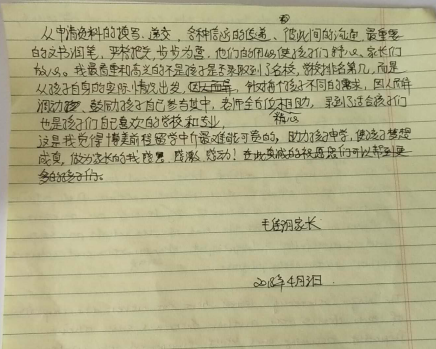 从申请资料的撰写、递交、各种信息的传递、彼此间的沟通、最重要
的文书润笔,严格把关,步步为营,他们的用心使孩子们舒心、家长们
放心。我最看重和高兴的不是孩子是否录取到了名校,学校排名第几,而是
从孩子自身的实际情况出发,针对每个孩子不同的需求,因人而异
鼓励孩子自己参与其中,老师全方位相助,寻到了适合孩子们
也是孩子们自己喜欢的学校和专业。
这是我觉得博美前程留学中介最难能可贵的,精心助力孩子申学,使孩子梦想
成真,做为家长的我感恩、感激、感动!在此真诚的祝愿您们可以帮到更
多的孩子们。
家长
2018年4月3日